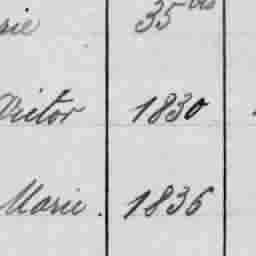 35 bis
Victor 1830
Marie. 1836